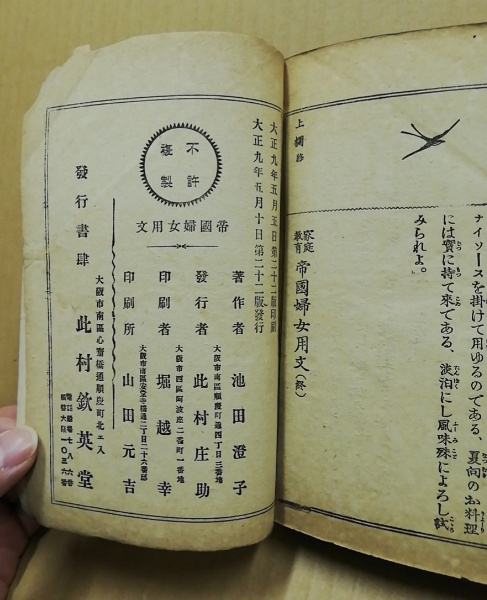 ナイソースを掛けて用ゆるのである、夏向のお料理
には實に持て來である、淡泊にし風味殊によろし試
みられよ。」
上欄終
家庭
教育
帝國婦女用文(終)
大正九年五月五日第二十二版印刷
大正九年五月十日第二十二版發行
不許
複製
帝國婦女用文
著作者 池田澄子
大阪市南區順慶町通四丁目三番地
發行者 此村庄助
大阪市西區阿波座二番町一番地
印刷者 堀越幸
大阪市南區安堂寺橋通二丁目二十六番邸
印刷所 山田元吉
大阪市南區心齋橋通順慶町北ヘ入
發行書肆 此村欽英堂